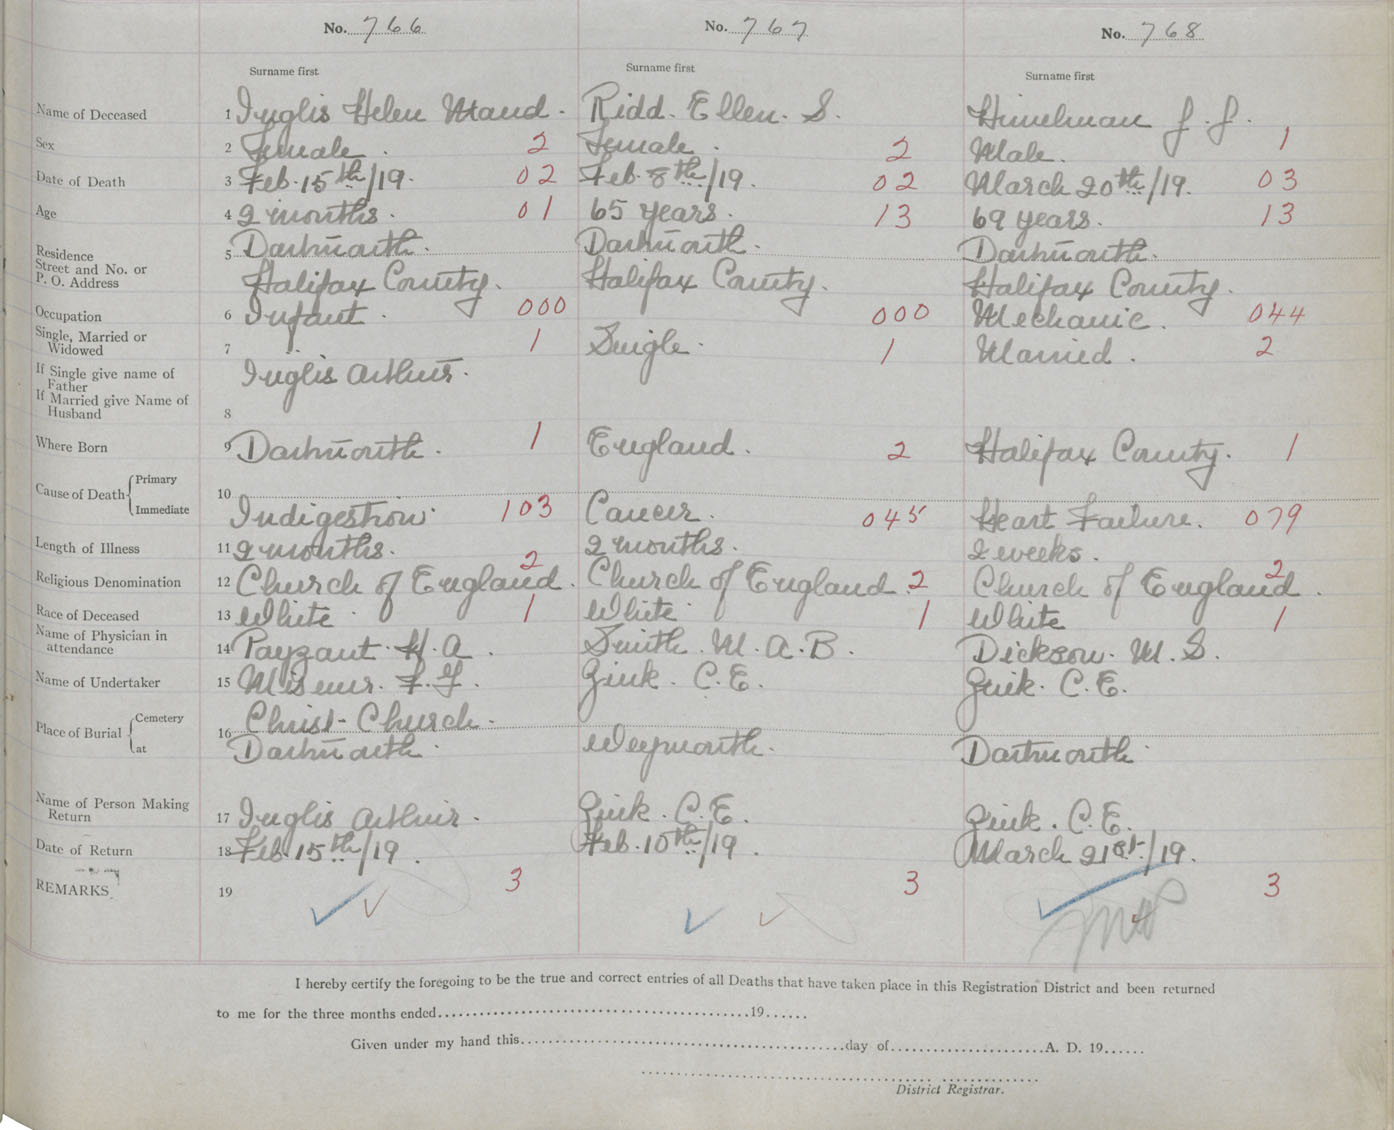 No. 766 No. 767 No. 768
Surname first Surname first Surname first
Name of Deceased 1 Inglis Helen Maud. Ridd. Ellen. S. Himelman J. J.
Sex 2 Female. 2 Female. 2 Male. 1
Date of Death 3 Feb. 15th/19. 02 Feb. 8th/19. 02 March 20th/19. 03
Age 4 2 months. 01 65 years. 13 69 years. 13
Residence 5 Dartmouth. Dartmouth. Dartmouth.
Street and No. or
P. O. Address Halifax County. Halifax County. Halifax County.
Occupation 6 Infant. 000 000 Mechanic. 044
Single, Married or
Widowed 7 1 Single. 1 Married. 2
If Single give name of
Father Inglis Arthur.
If Married give Name of
Husband 8
Where Born 9 Dartmouth. 1 England. 2 Halifax County. 1
Cause of Death Primary 10
Immediate Indigestion. 103 Cancer. 045 Heart Failure. 079
Length of Illness 11 2 months. 2 months. 2 weeks.
Religious Denomination 12 Church of England. 2 Church of England. 2 Church of England. 2
Race of Deceased 13 White. 1 White. 1 White 1
Name of Physician in
attendance 14 Payzant. H. A. Smith. M. A. B. Dickson. M. S.
Name of Undertaker 15 F. G. Zink. C. E. Zink. C. E.
Place of Burial Cemetery 16 Christ-Church.
at Dartmouth. Weymouth. Dartmouth.
Name of Person Making
Return 17 Inglis Arthur. Zink. C. E. Zink. C. E.
Date of Return 18 Feb. 15th/19. Feb. 10th/19. March 21st/19.
REMARKS 19 3 3 3
I hereby certify the foregoing to be the true and correct entries of all Deaths that have taken place in this Registration District and been returned
to me for the three months ended 19
Given under my hand this day of A. D. 19
District Registrar.